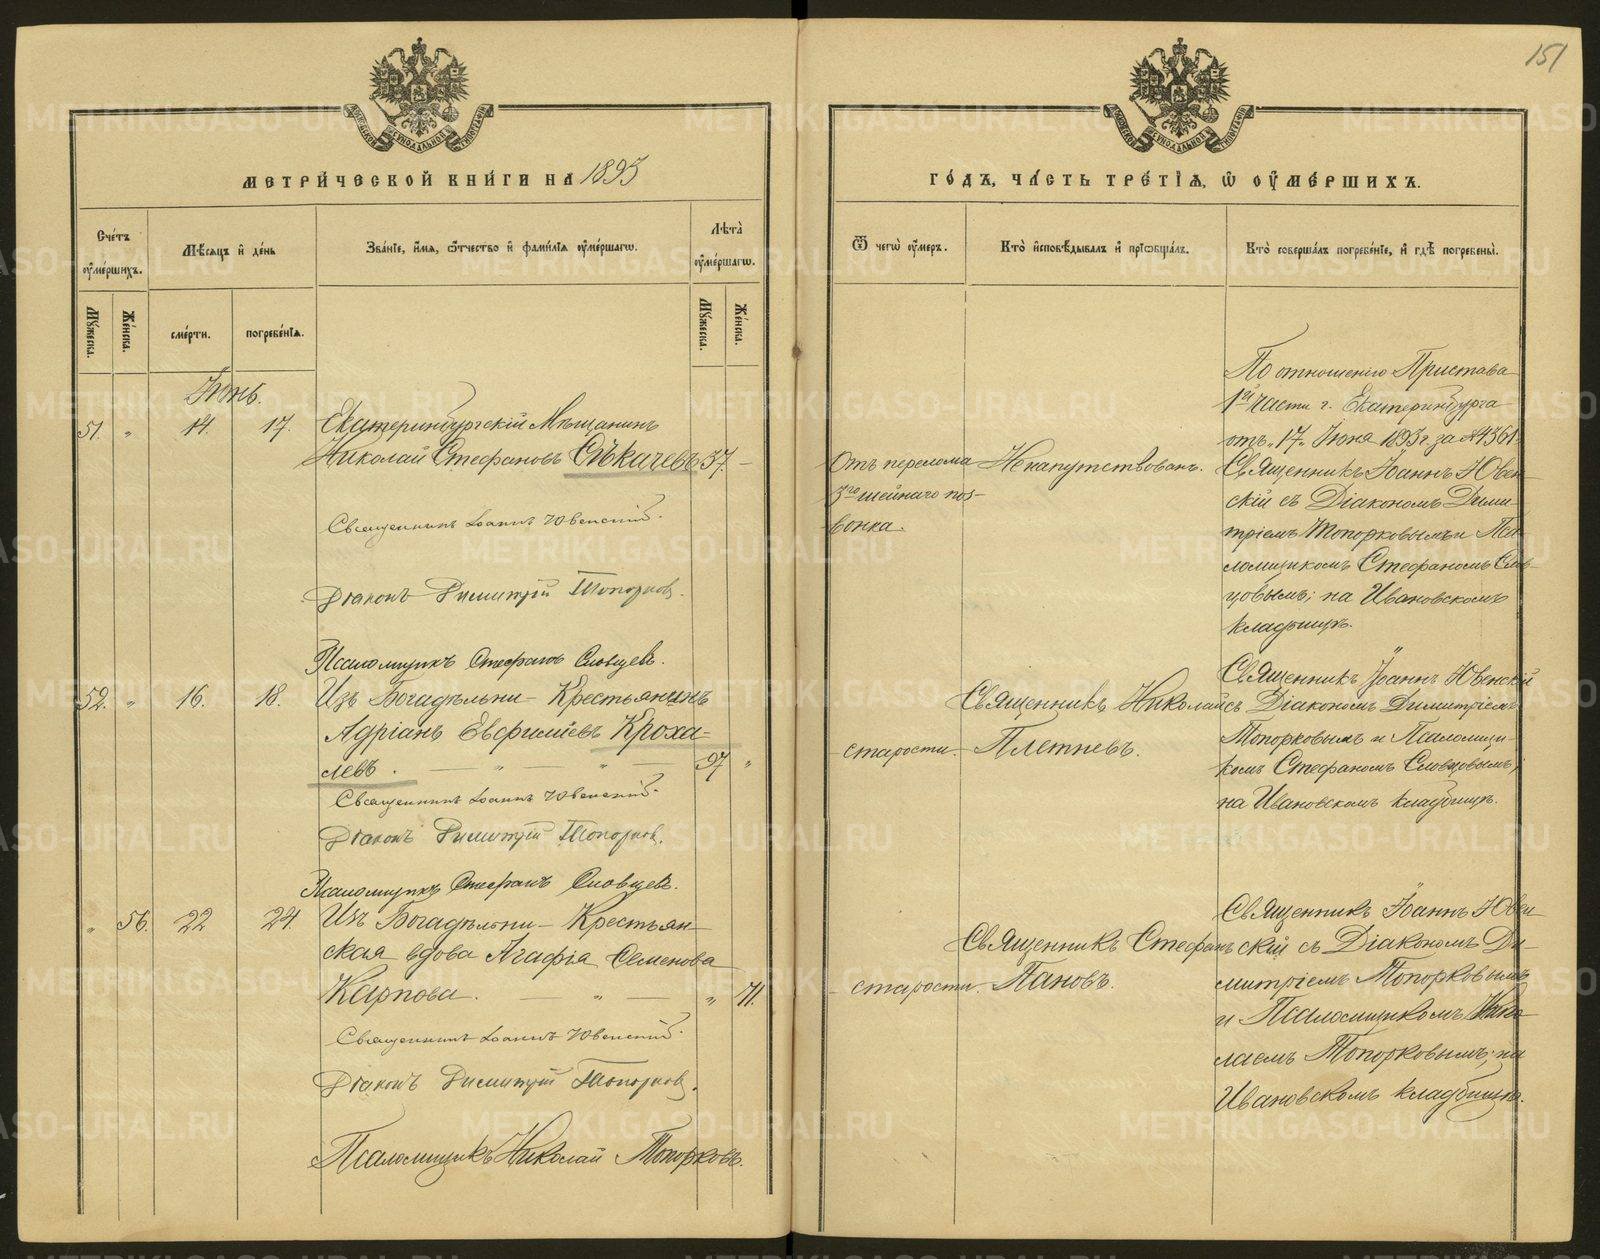 151
МЕТРИ́ЧЕСКОЙ КНИ́ГИ НА 1893
ГО́ДЪ, ЧА́СТЬ ТРЕ́ТІѦ, Ѡ ОУ҆МЕ́РШИХЪ.
Сче́тъ оу҆ме́ршихъ.
Мѣ́сяцъ и҆ де́нь
Зва́нїе, и҆́мѧ, ѻ҆́тчество и҆ фами́лїѧ оу҆ме́ршагѡ.
Лѣ́та оу҆ме́ршагѡ.
Ѿ чегѡ̀ оу҆́меръ.
Кто̀ и҆сповѣ́дывалъ и҆ прїѡбща́лъ.
Кто̀ соверша́лъ погребе́нїе, и҆ гдѣ̀ погребены̀.
Му́жеска.
Же́нска.
сме́рти.
погребе́нїѧ.
Му́жеска.
Же́нска.
Іюнь.
51. " 14. 17. Екатеринбургскій Мѣщанинъ
Николай Стефановъ Сѣкачевъ 37. –
Священникъ Іоаннъ Ювенскій.
Діаконъ Димитрій Топорковъ.
Псаломщикъ Стефанъ Словцевъ.
Отъ перелома
3го шейнаго поз-
вонка.
Ненапутствованъ.
По отношенію Пристава
1й части г. Екатеринбурга
отъ "17" Іюня 1893 г. за № 4361.
Священникъ Іоаннъ Ювен-
скій съ Діакономъ Дими-
тріемъ Топорковымъ и Пса-
ломщикомъ Стефаномъ Слов-
цовымъ; на Ивановскомъ
кладбищѣ.
52. " 16. 18. Изъ Богадѣльни – Крестьянинъ
Адріанъ Евфиміевъ Кроха-
левъ. — " — " — 97 "
Священникъ Іоаннъ Ювенскій.
Діаконъ Димитрій Топорковъ.
Псаломщикъ Стефанъ Словцевъ.
старости.
Священникъ Николай
Плетневъ.
Священникъ Іоаннъ Ювенскій
съ Діакономъ Димитріемъ
Топорковымъ и Псаломщи-
комъ Стефаномъ Словцовымъ;
на Ивановскомъ кладбищѣ.
" 56. 22 24. Изъ Богадѣльни – Крестьян-
ская вдова Агафія Семенова
Карпова. — " — " 71.
Священникъ Іоаннъ Ювенскій.
Діаконъ Димитрій Топорковъ.
Псаломщикъ Николай Топорковъ.
старости.
Священникъ Стефанъ
Пановъ.
Священникъ Іоаннъ Ювен-
скій съ Діакономъ Ди-
митріемъ Топорковымъ
и Псаломщикомъ Нико-
лаемъ Топорковымъ; на
Ивановскомъ кладбищѣ.
METRIKI.GASO-URAL.RU